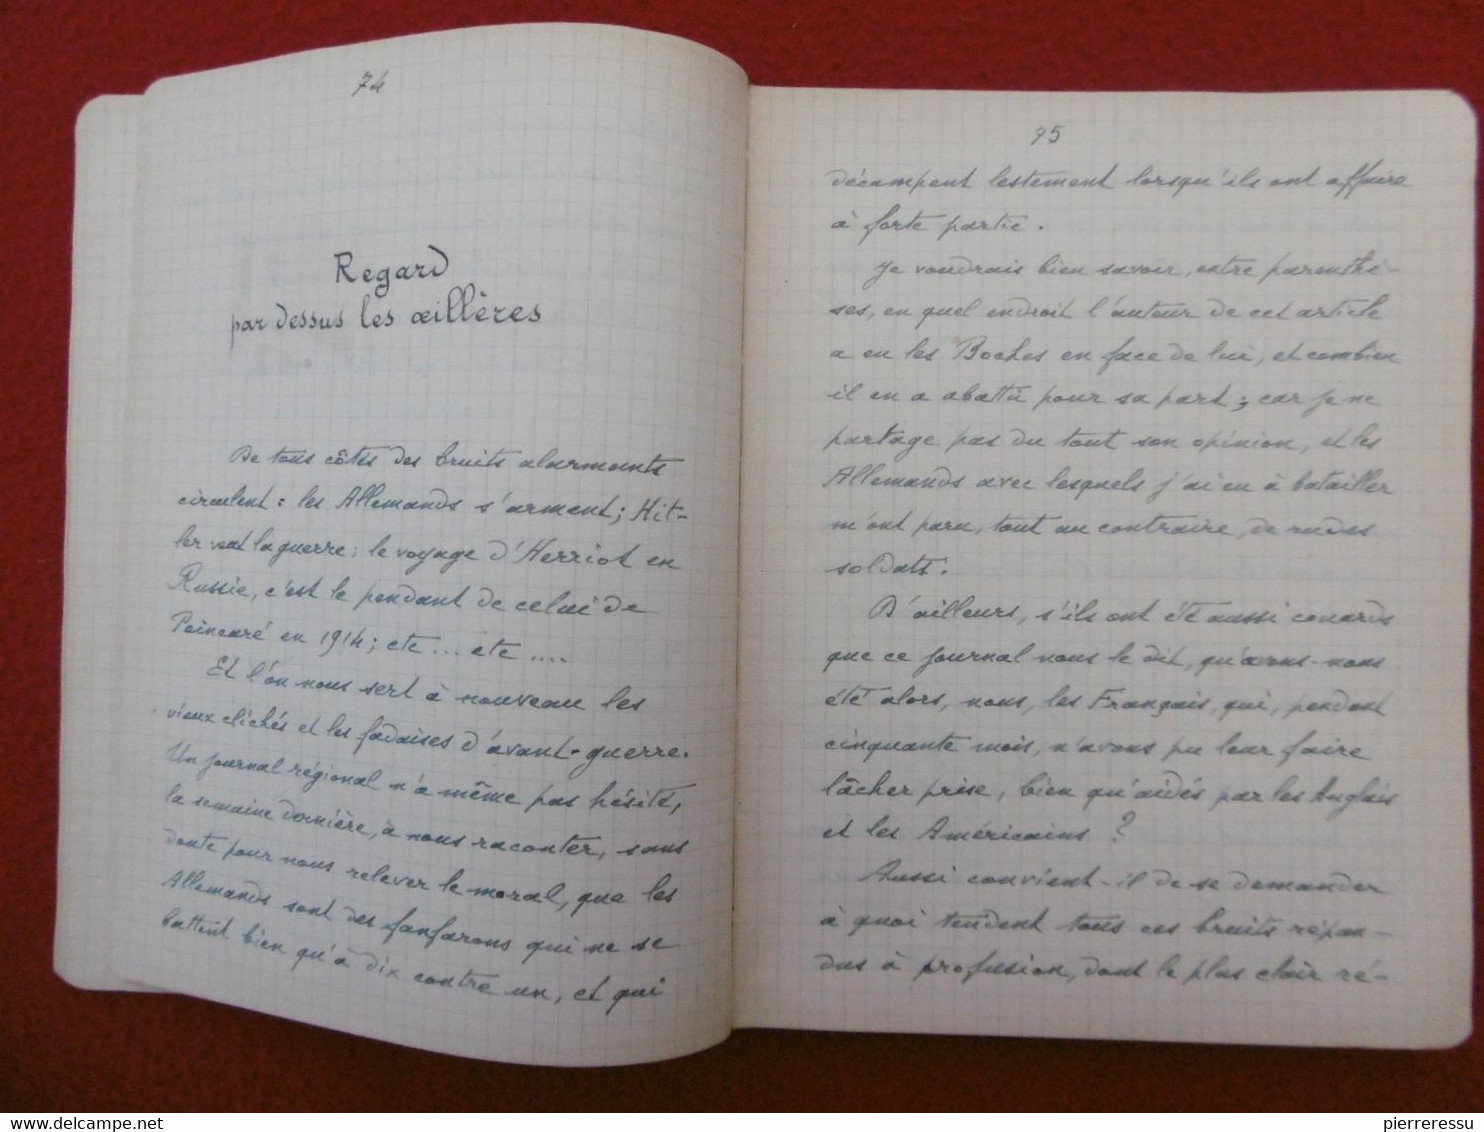 74
Regard
par dessus les œillères
De tous côtés des bruits alarmants
circulent : les Allemands s'arment ; Hit-
ler veut la guerre ; le voyage d'Herriot en
Russie, c'est le pendant de celui de
Poincaré en 1914 ; etc ... etc ....
Et l'on nous sert à nouveau les
vieux clichés et les fadaises d'avant-guerre.
Un journal régional n'a même pas hésité,
la semaine dernière, à nous raconter, sans
doute pour nous relever le moral, que les
Allemands sont des fanfarons qui ne se
battent bien qu'à dix contre un, et qui
75
décampent lestement lorsqu'ils ont affaire
à forte partie .
Je voudrais bien savoir, entre parenthè-
ses, en quel endroit l'auteur de cet article
a eu les Boches en face de lui, et combien
il en a abattu pour sa part ; car je ne
partage pas du tout son opinion, et les
Allemands avec lesquels j'ai eu à batailler
m'ont paru, tout au contraire, de rudes
soldats .
D'ailleurs, s'ils ont été aussi couards
que ce journal nous le dit, qu'avons-nous
été alors, nous, les Français, qui, pendant
cinquante mois, n'avons pu leur faire
lâcher prise, bien qu'aidés par les Anglais
et les Américains ?
Aussi convient-il de se demander
à quoi tendent tous ces bruits répan-
dus à profusion, dont le plus clair ré-
delcampe.net
pierreressu